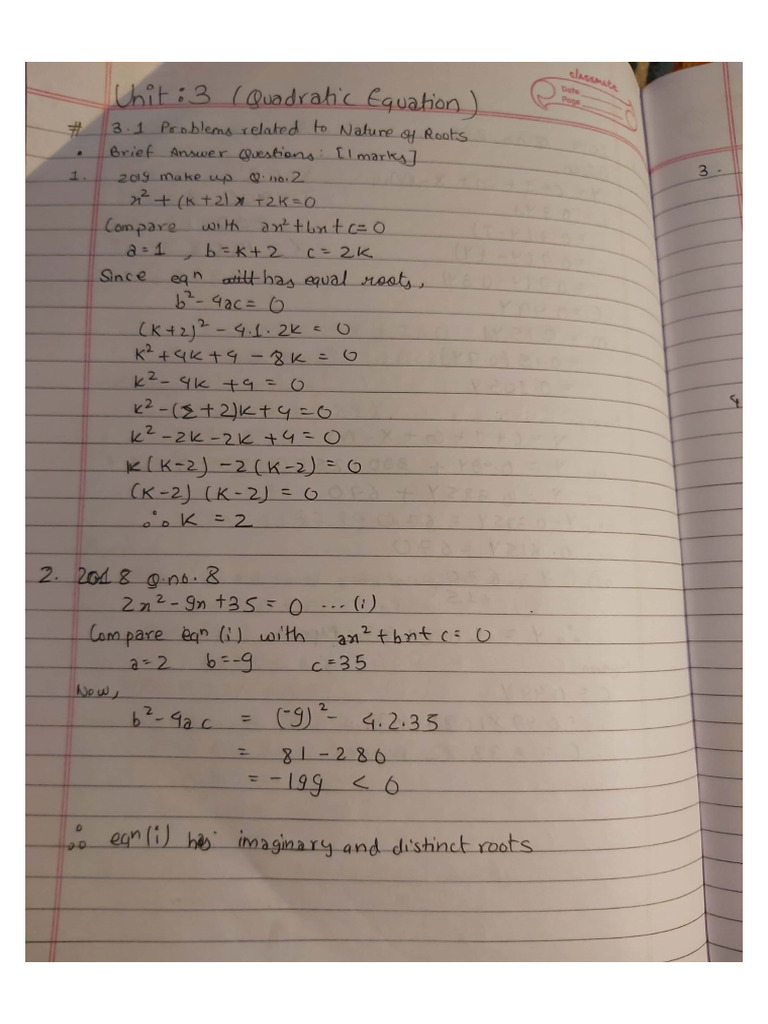 classmate
Date
Page
Unit : 3 (Quadratic Equation)
# 3.1 Problems related to Nature of Roots
• Brief Answer Questions: [1 marks]
1. 2019 make up Q.no.2
x² + (k+2)x + 2k = 0
Compare with ax² + bx + c = 0
a=1 , b=k+2 c=2k
Since eqn has equal roots,
b² - 4ac = 0
(k+2)² - 4.1.2k = 0
k² + 4k + 4 - 8k = 0
k² - 4k + 4 = 0
k² - (2+2)k + 4 = 0
k² - 2k - 2k + 4 = 0
k(k-2) - 2(k-2) = 0
(k-2) (k-2) = 0
∴ k = 2
2. 2018 Q.no.8
2x² - 9x + 35 = 0 ...(i)
Compare eqn (i) with ax² + bx + c = 0
a=2 b=-9 c=35
Now,
b² - 4ac = (-9)² - 4.2.35
= 81 - 280
= -199 < 0
∴ eqn(i) has imaginary and distinct roots
3.
4